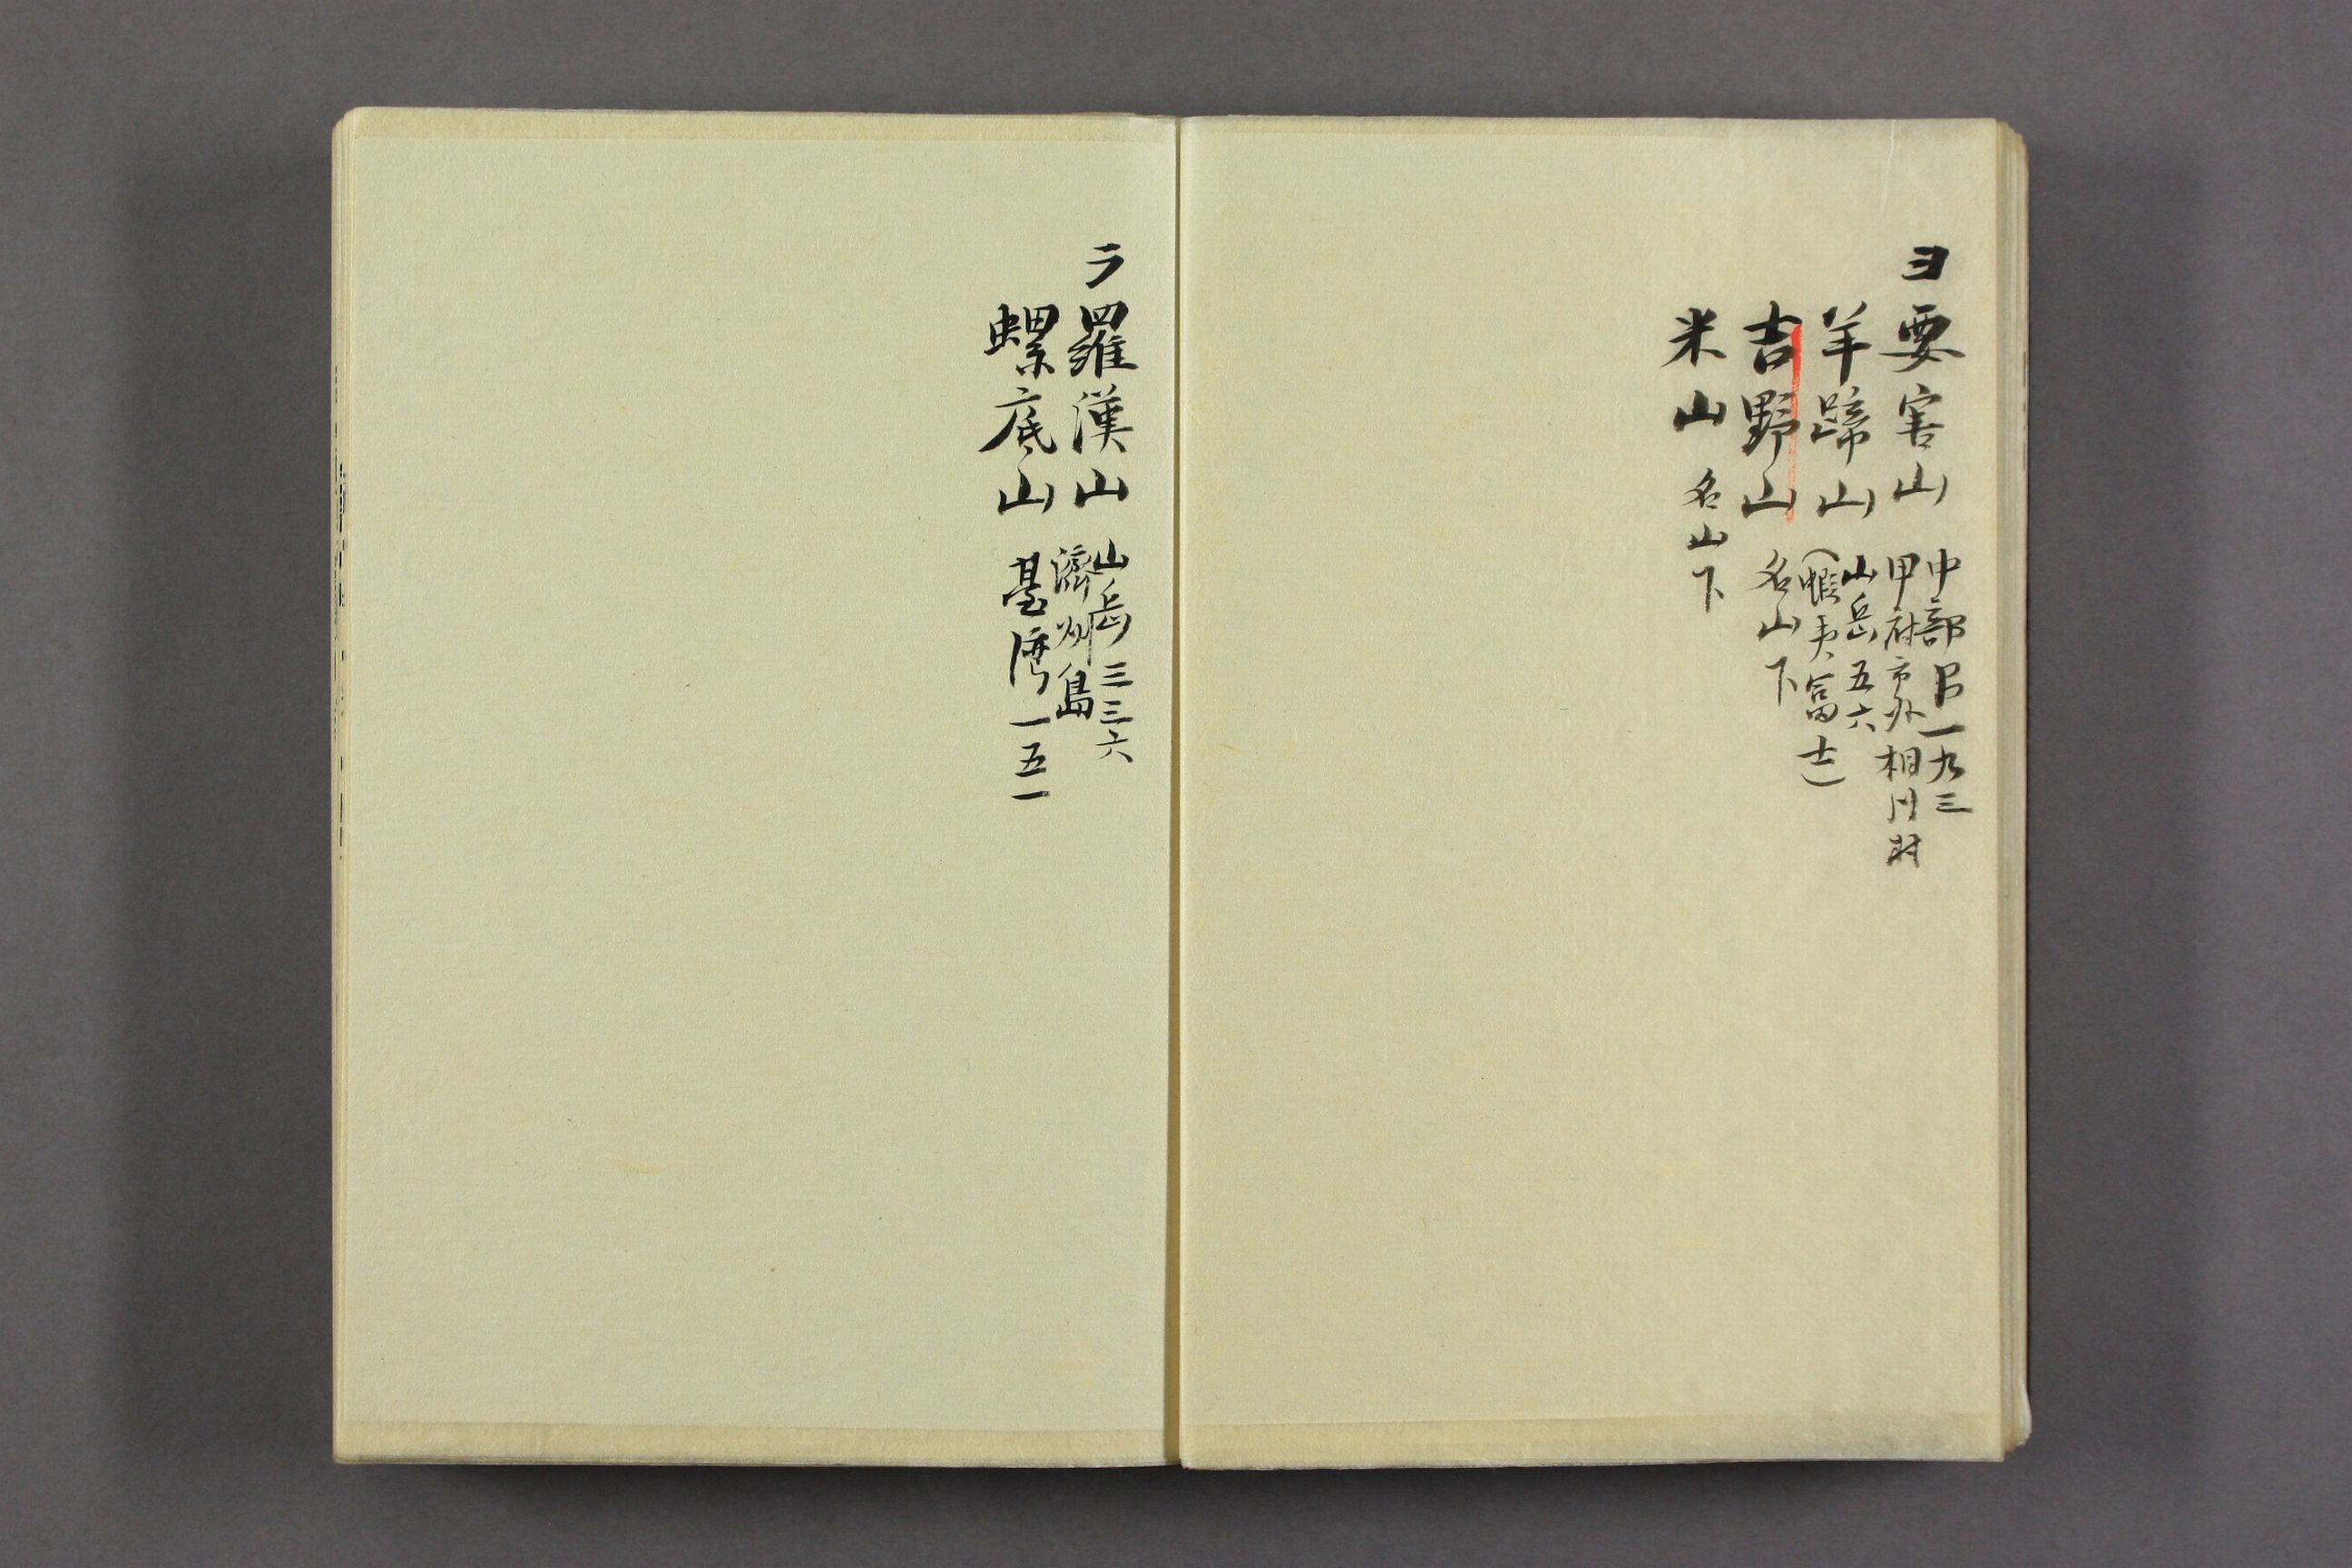 ヨ
要害山
中部 一九三
甲府市外相川村
羊蹄山
山岳五六
(蝦夷富士)
吉野山 名山下
米山 名山下
ラ
羅漢山
山岳三三六
濟州島
螺底山 臺湾一五一